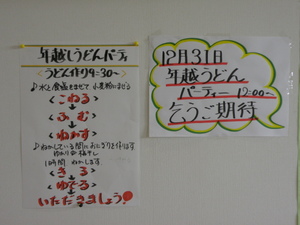 年越しうどんパーティ
<うどん作り9:30〜>
♪水と食塩をまぜて小麦粉にまぜる
<こねる>
<ふむ>
<ねかす>
♪ねかしている間におにぎりを作ります
1時間 ねかします。
<きる>
<ゆでる>
いただきましょう!
12月31日
年越うどん
パーティー 12:00〜
乞うご期待